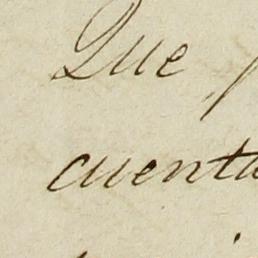 Que
cuenta